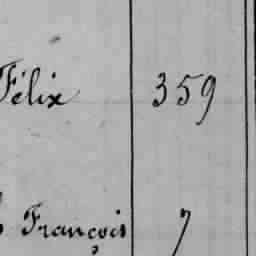 Félix 359
François 7